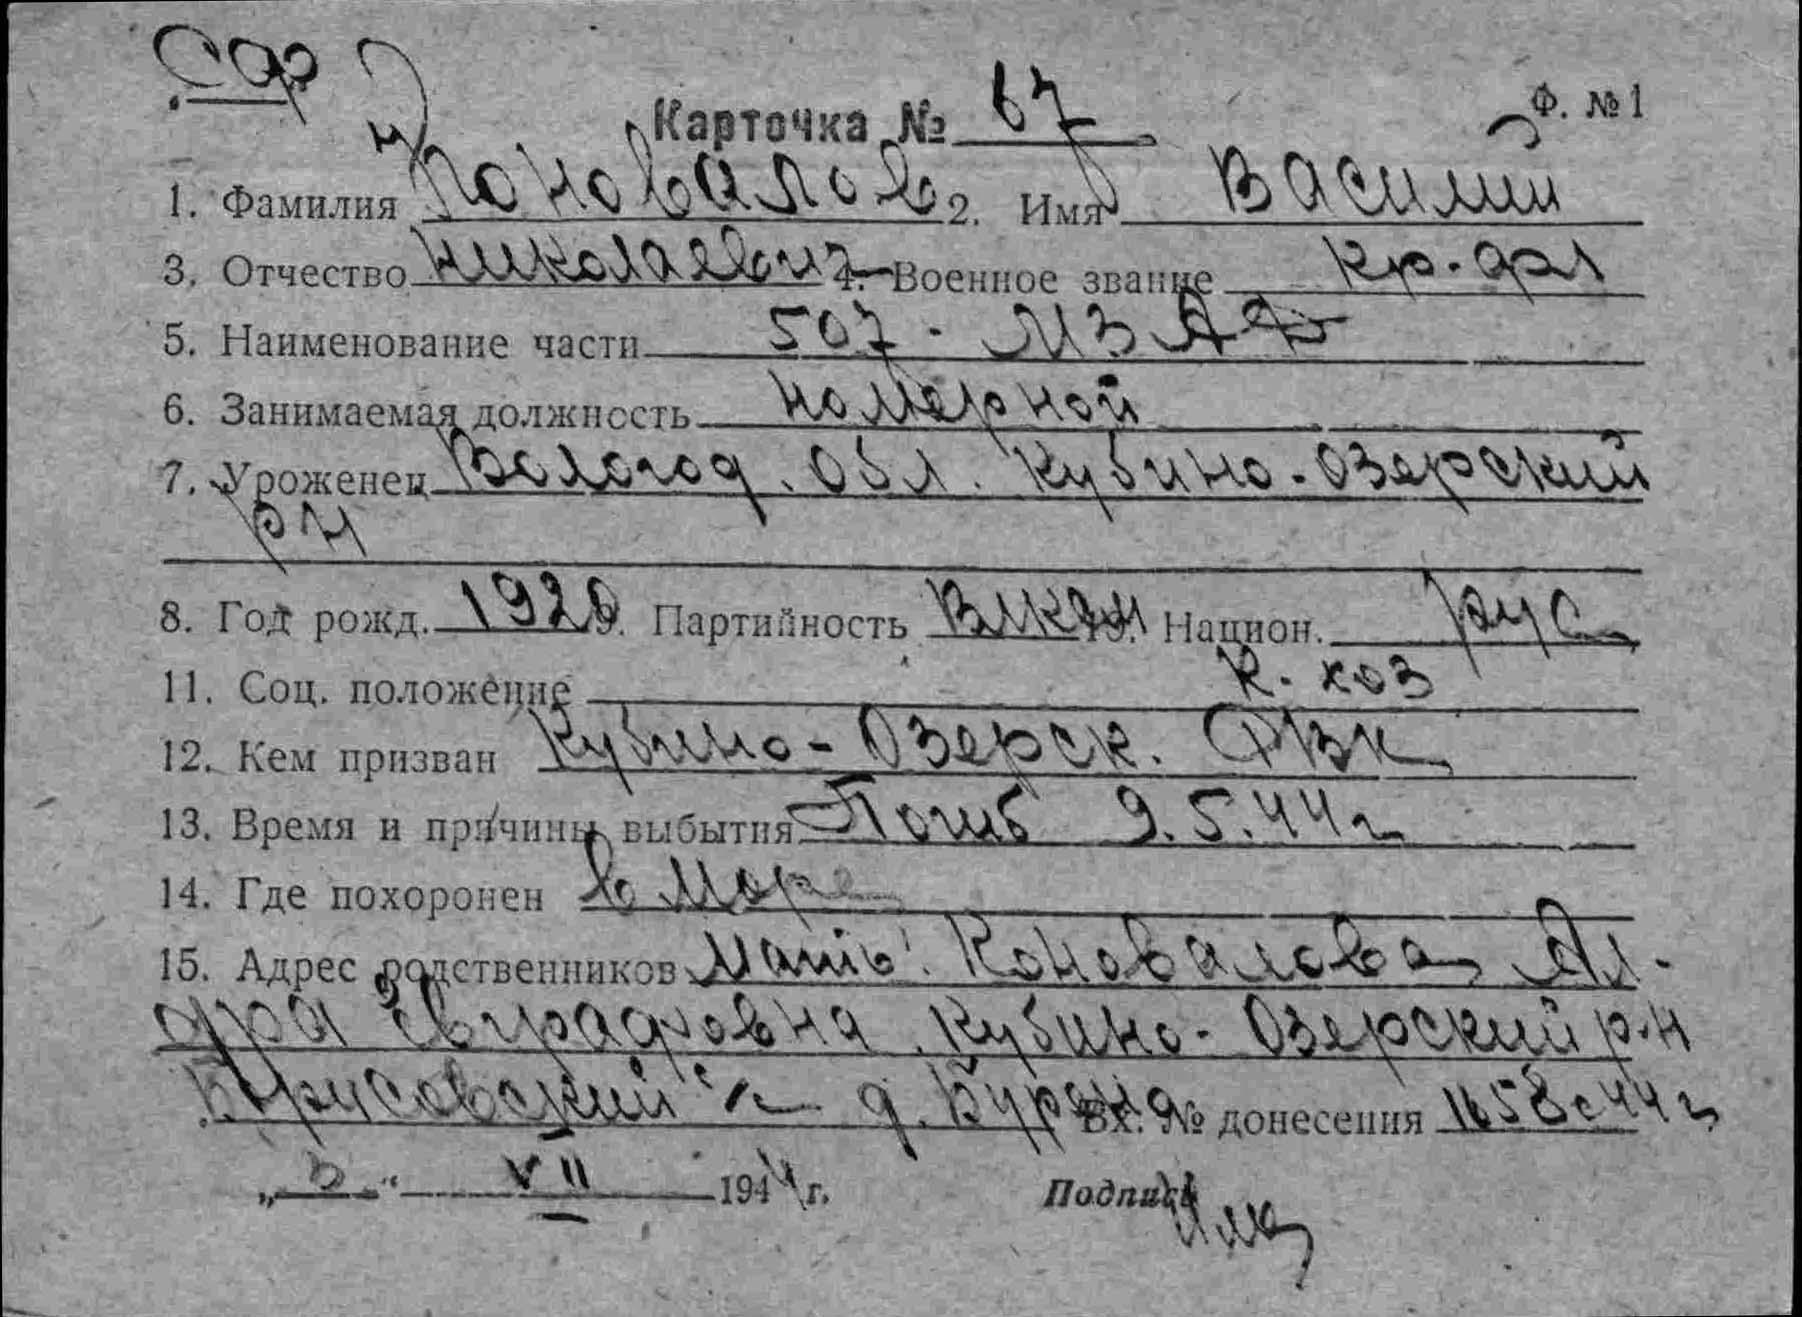 Ф. № 1
Карточка № 67
1. Фамилия Коновалов 2. Имя Василий
3. Отчество Николаевич 4. Военное звание кр-арм
5. Наименование части 507 - МЗАД
6. Занимаемая должность номерной
7. Уроженец Вологод. обл. Кубино-Озерский
р-н
8. Год рожд. 1920 9. Партийность ВЛКСМ 10. Национ. рус
11. Соц. положение к-хоз
12. Кем призван Кубино-Озерск. РВК
13. Время и причины выбытия Погиб 9.5.44 г
14. Где похоронен в море
15. Адрес родственников Мать: Коновалова Ал-
дра Евграфовна Кубино-Озерский р-н
с/с д. Вх. № донесения 1658с 44 г
„ “ VII 1944 г. Подпись